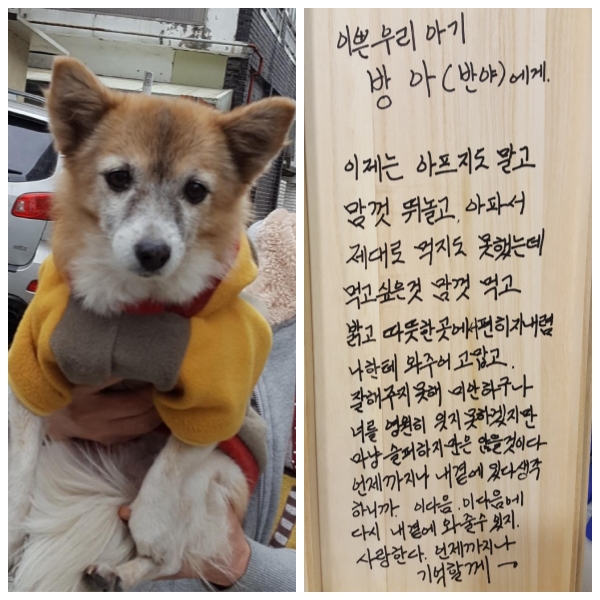 이쁜 우리 아기
방 아 (반야)에게.
이제는 아프지도 말고
맘껏 뛰놀고. 아파서
제대로 먹지도 못했는데
먹고싶은것 맘껏 먹고
밝고 따뜻한 곳에서 편히지내렴
나한테 와주어 고맙고.
잘해주지 못해 미안하구나
너를 영원히 잊지 못하겠지만
마냥 슬퍼하지만은 않을것이다
언제까지나 내곁에 있다생각
하니까 이다음. 이다음에
다시 내곁에 와 줄수 있지.
사랑한다. 언제까지나
기억할께